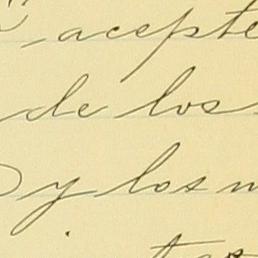 acepte
de los
y los